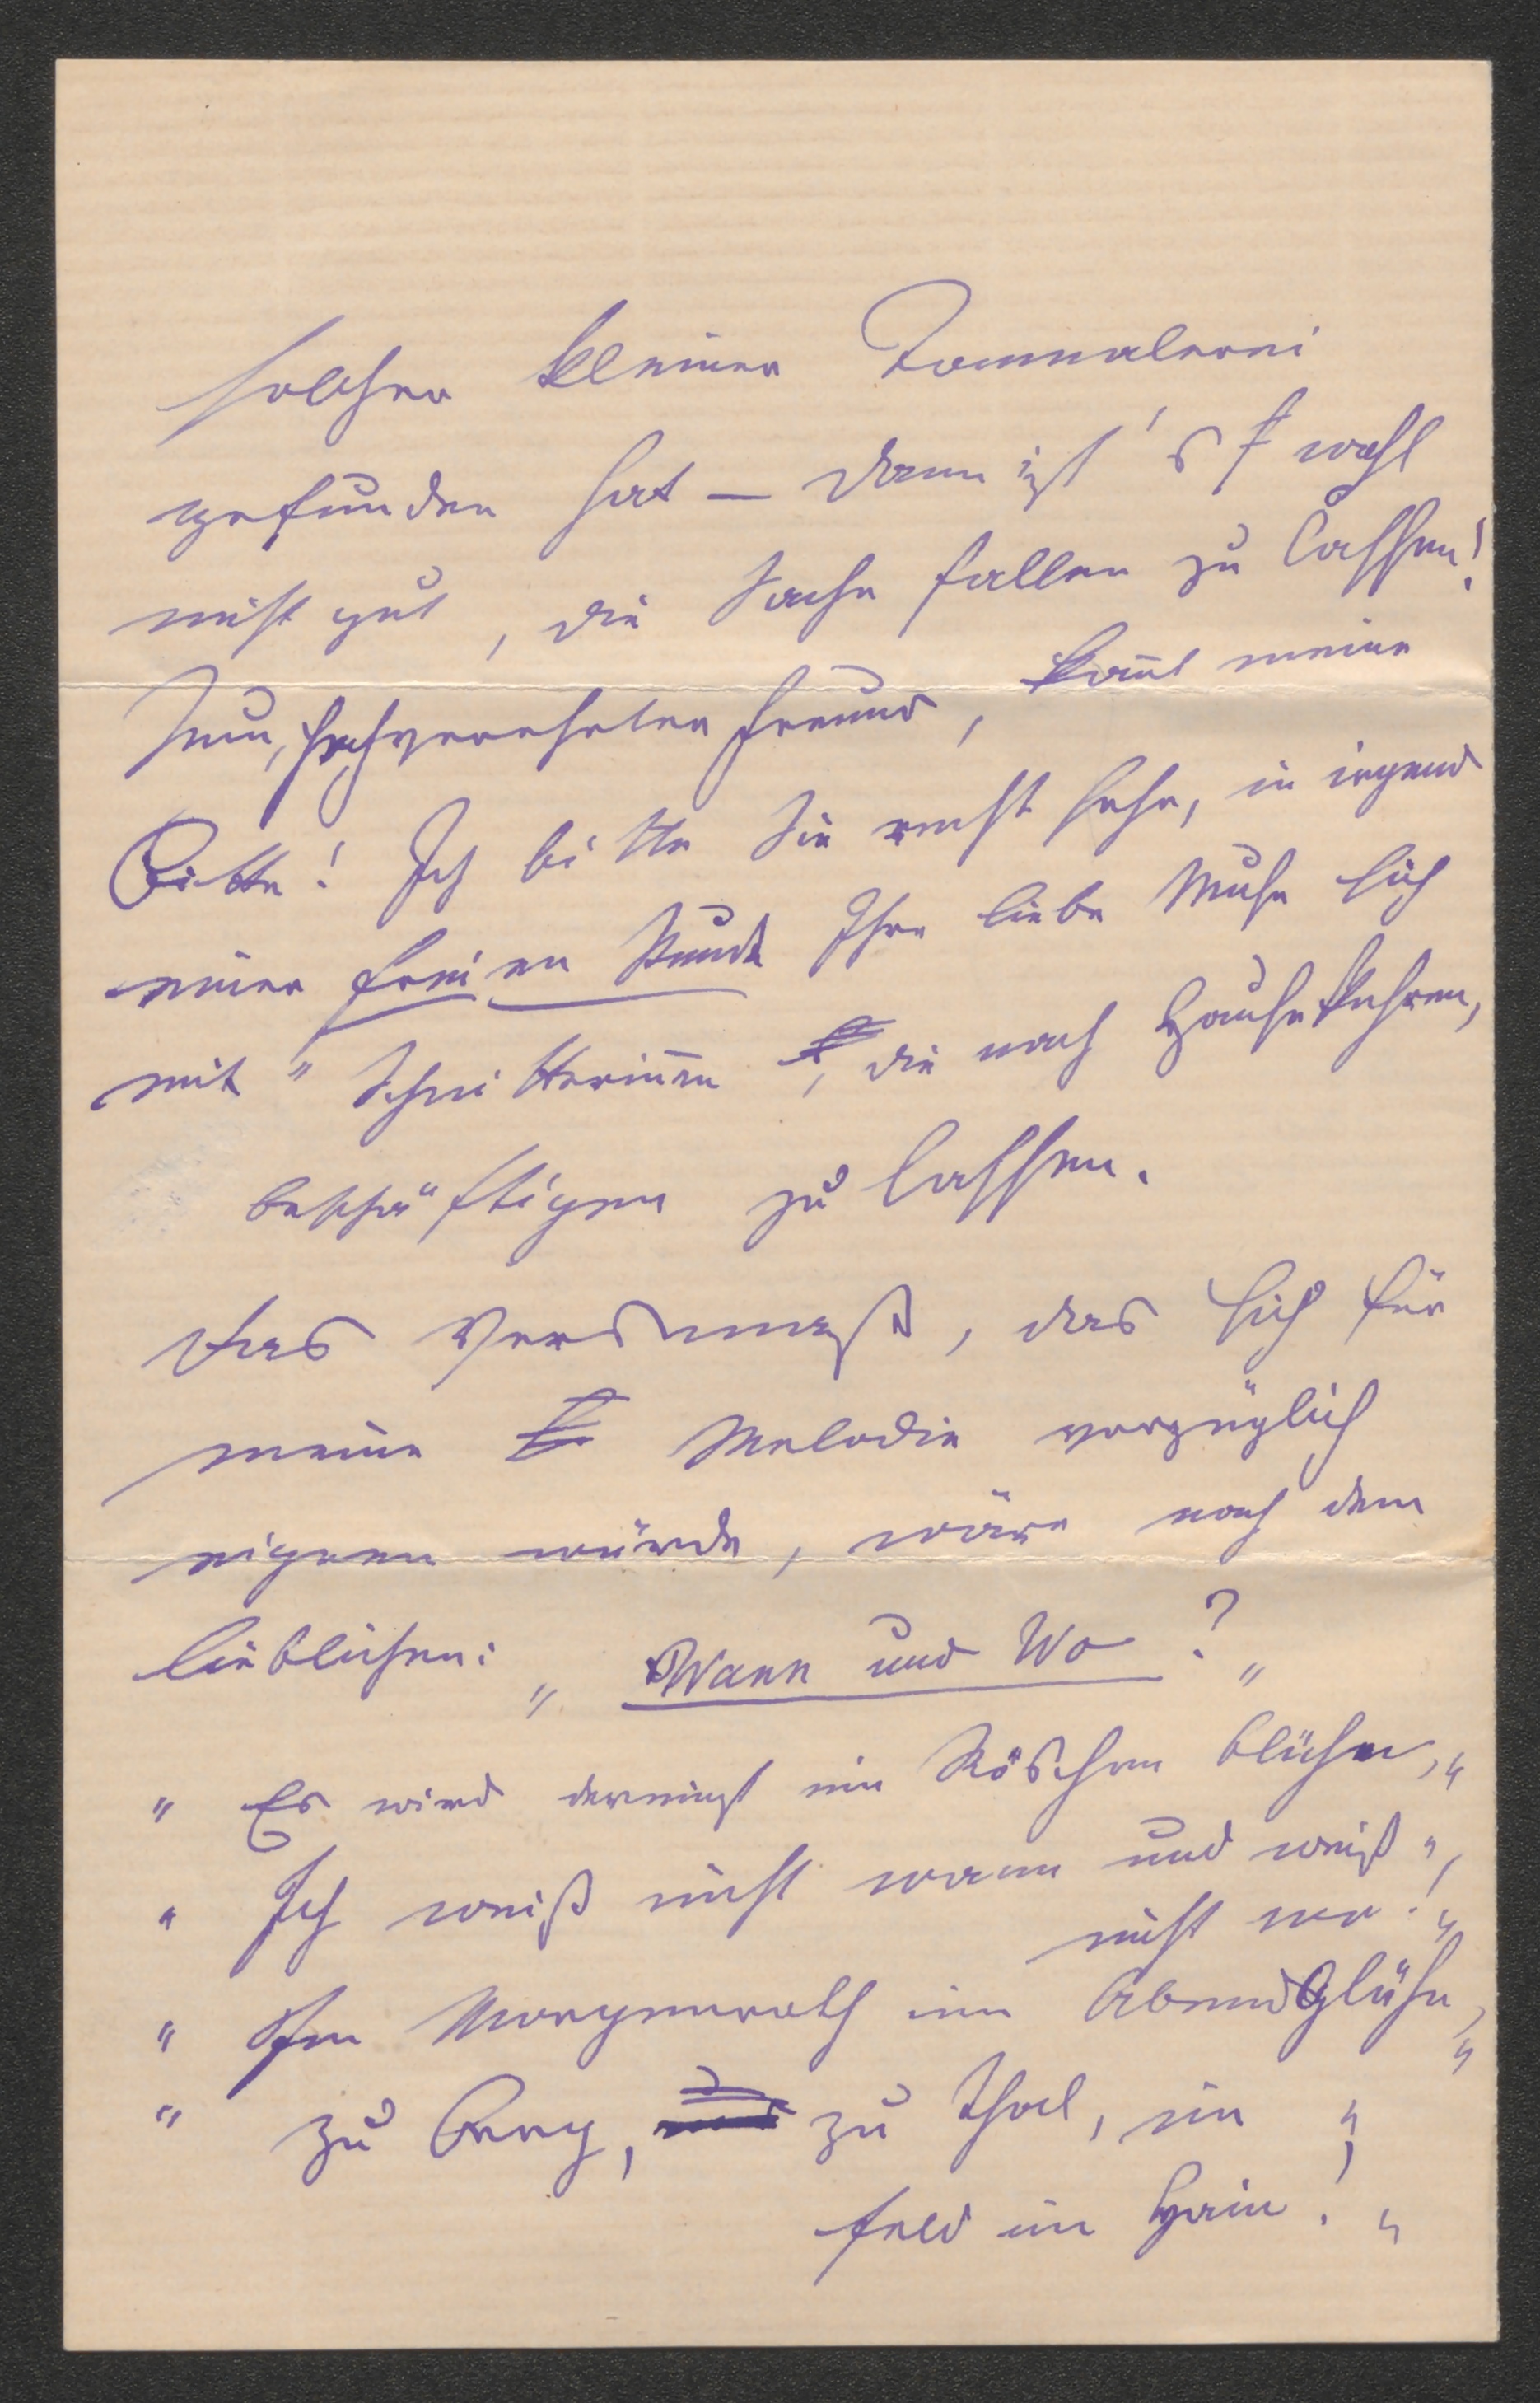 solcher kleiner Tonmalerei
gefunden hat — dann ist's wohl
nicht gut, die Sache fallen zu lassen!
Nun, hochverehrter Freund, kommt meine
Bitte! Ich bitte Sie recht sehr, in irgend
einer freien Stunde Ihre liebe Muse sich
mit " Schnitterinnen, die nach Hause kehren,
beschäftigen zu lassen.
Das Versmaß, das sich für
meine Melodie vorzüglich
eignen würde, wäre nach dem
lieblichen: „ Wann und Wo ? „
" Es wird dereinst ein Röschen blühen, "
" Ich weiß nicht wann und weiß ",
nicht wo! "
" Im Morgenroth im Abendglühn, "
" zu Berg, zu Thal, im "
Feld im Hain! "